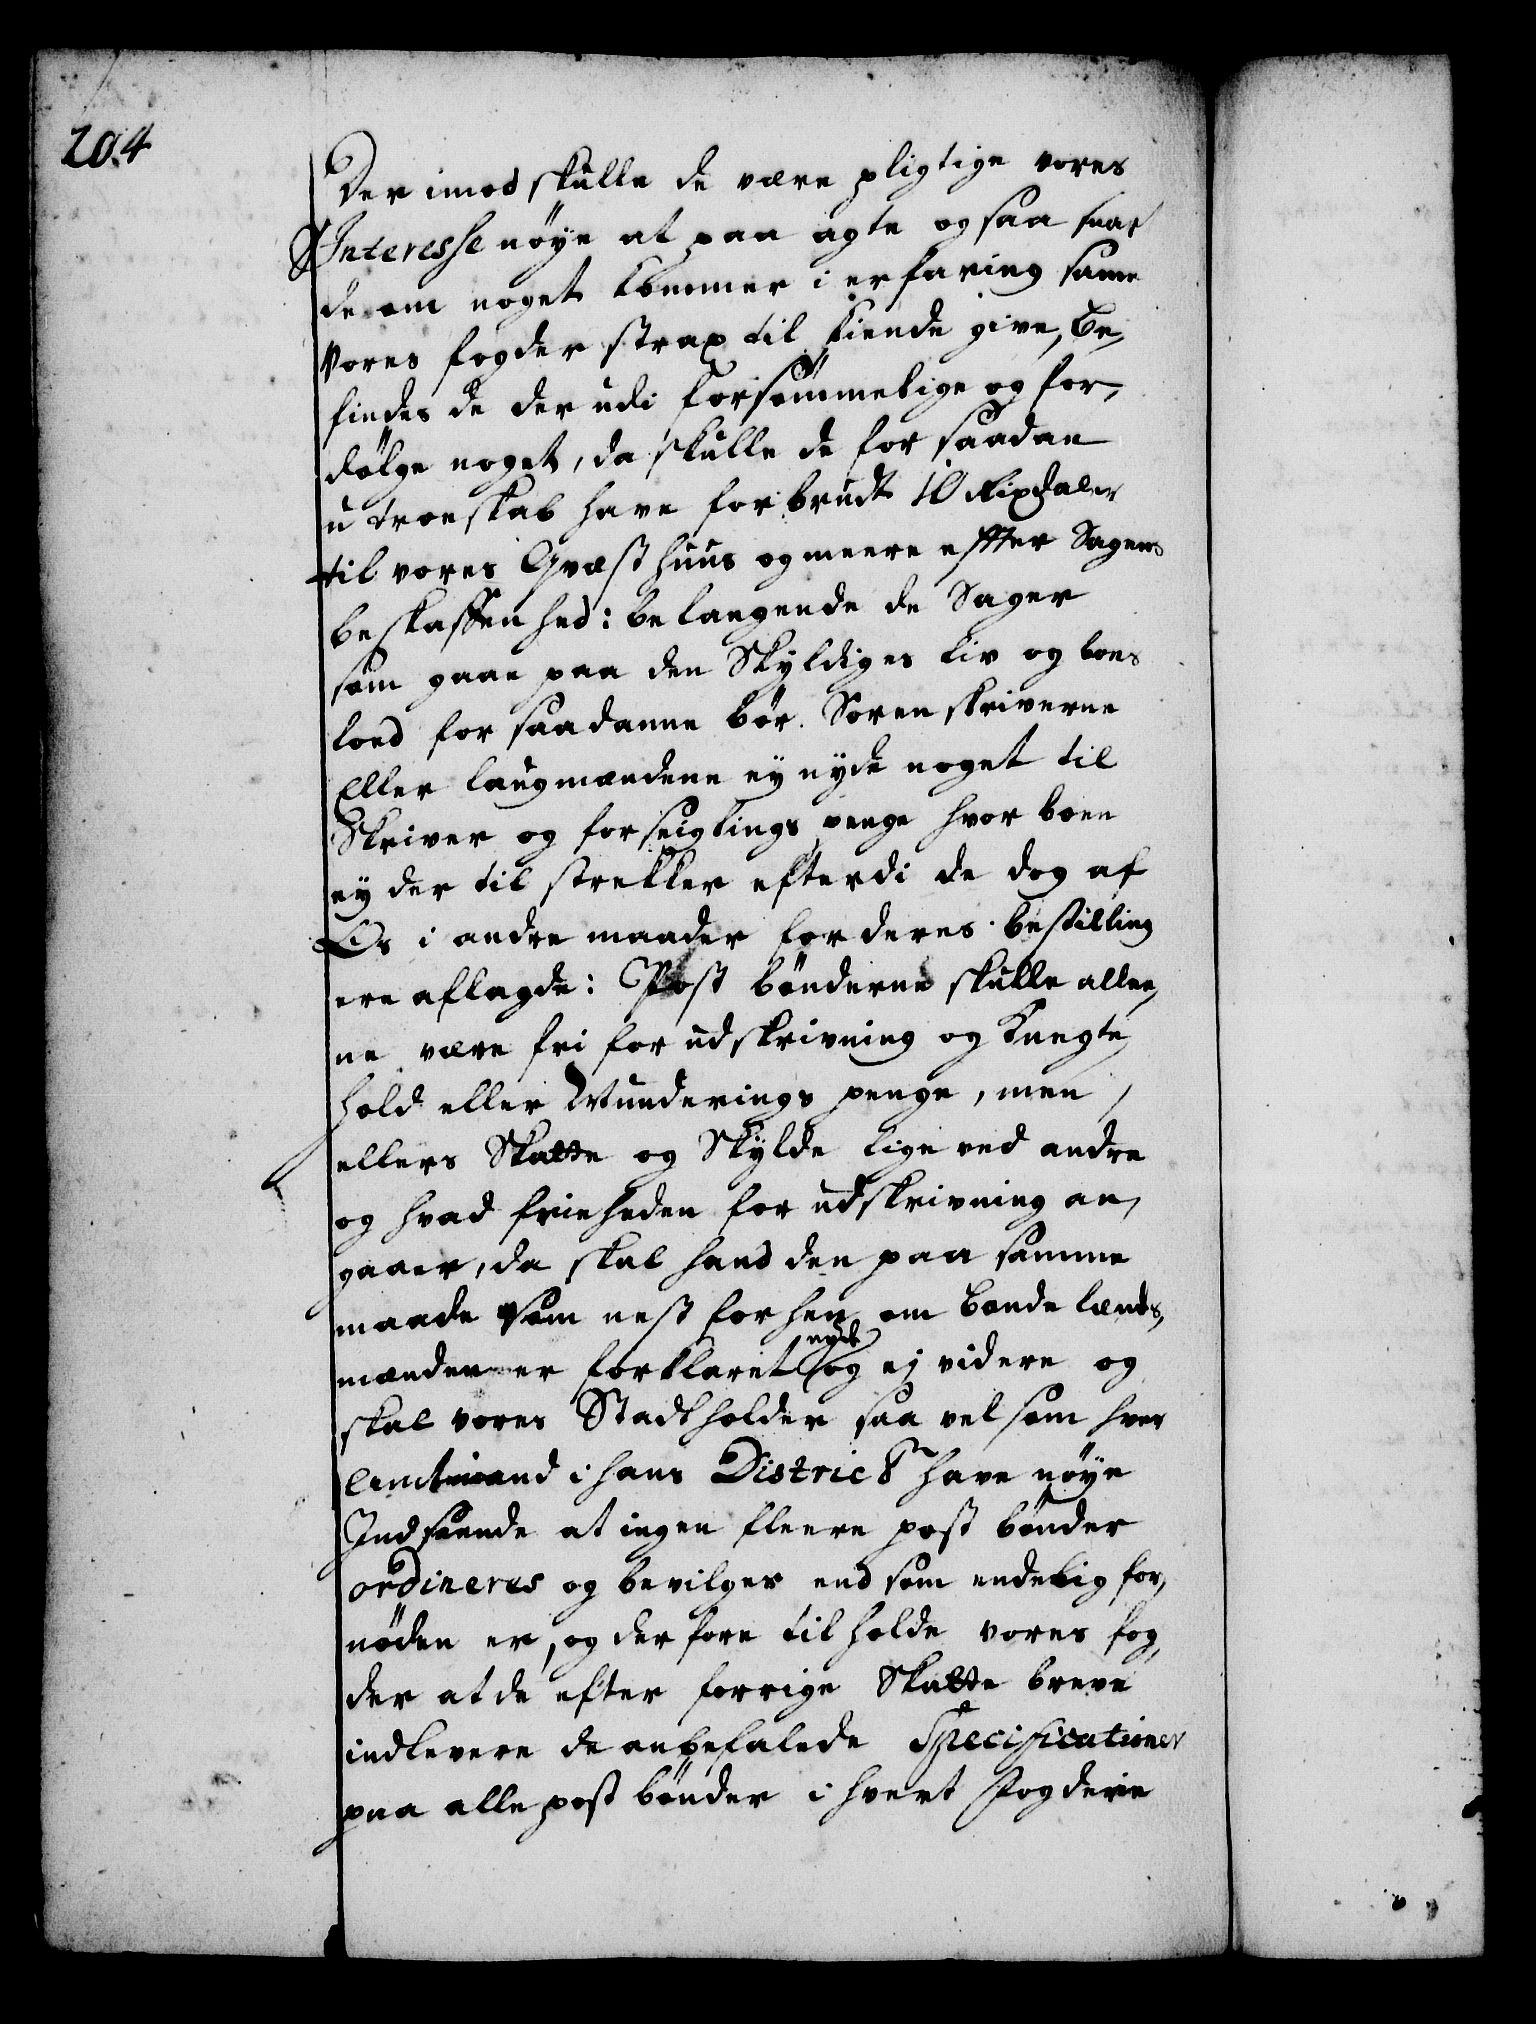 204
Der imod skulle de være pligtige vores
Interesse nöye at paa agte og saa snar
de om noget kommer i erfaring same
vores fogder strax til kiende give, be,
findes de der udi forsömmelige og for,
dölge noget, da skulle de for saadan
u troeskab have forbrudt 10 Rixdaler
til vores Qvæsthuus og meere effter Sagens
beskaffenhed: belangende de Sager
som gaae paa den Skyldiges liv og boes
lod for saadanne bör Sorenskriverne
Eller laugmændene ey nyde noget til
Skriver og forseiglings penge hvor boen
ey der til strekker efterdi de dog af
Os i andre maader for deres bestilling
ere aflagde: Post bönderne skulle allee,
ne være fri for udskrivning og Knegte
hold eller Munderings penge, men
ellers Skatte og Skylde lige ved andre
og hvad friheden for udskrivning an,
gaaer, da skal hand den paa samme
maade som nest forhen om bonde lænds,
mænder er forklaret nyde og ej videre og
skal vores Stadtholder saa vel som hver
Amtmand i hans District have nöye
Indseende at ingen fleere post bönder
ordineres og bevilges end som endelig for,
nöden er, og der fore til holde vores fog,
der at de efter forrige Skatte breve
indlevere de anbefalede Specificationer
paa alle post bönder i hvert Fogderie